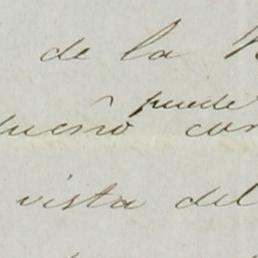 de la
puede
dueño con
vista del